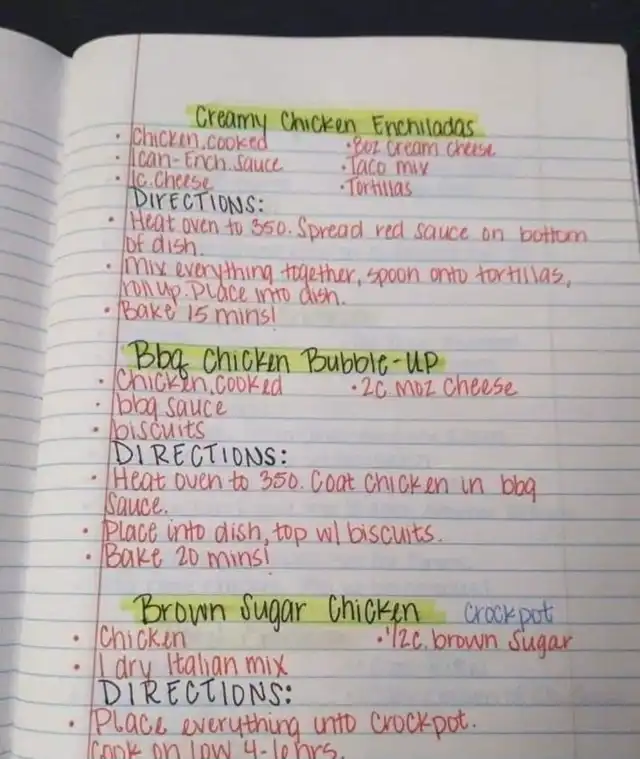 Creamy Chicken Enchiladas
• Chicken, cooked • 8oz cream cheese
• 1 can-Ench. Sauce • Taco mix
• 1c. Cheese • Tortillas
DIRECTIONS:
• Heat oven to 350. Spread red sauce on bottom
of dish.
• Mix everything together, spoon onto tortillas,
roll up. Place into dish.
• Bake 15 mins!
Bbq Chicken Bubble-UP
• Chicken, cooked • 2c. Moz Cheese
• bbq sauce
• biscuits
DIRECTIONS:
• Heat oven to 350. Coat chicken in bbq
Sauce.
• Place into dish, top w/ biscuits.
• Bake 20 mins!
Brown Sugar Chicken Crockpot
• Chicken • 1/2c. brown Sugar
• 1 dry Italian mix
DIRECTIONS:
• Place everything into Crockpot.
Cook on low 4-6 hrs.